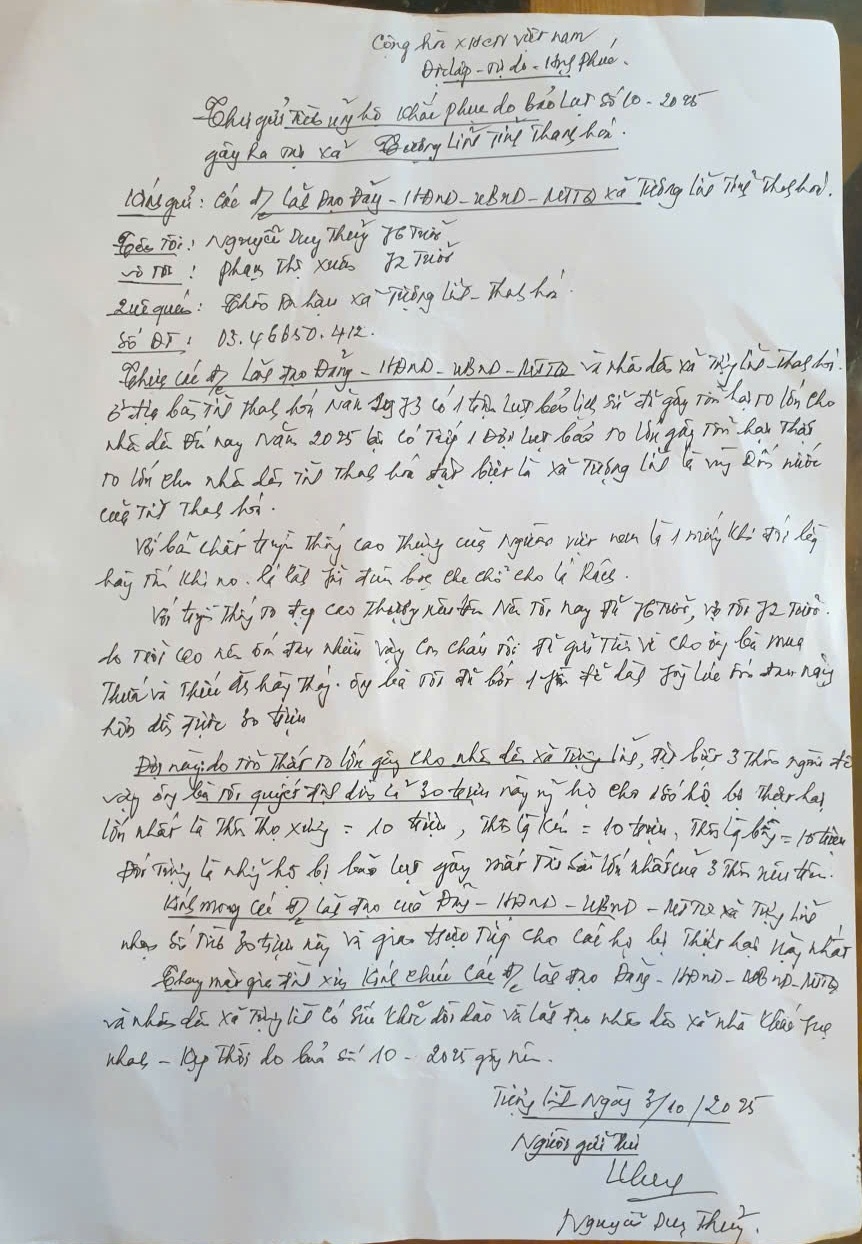 Cộng hòa XHCN Việt nam
Độc lập - Tự do - Hạnh Phúc.
Thư gửi tiền ủng hộ khắc phục do bão lụt số 10 - 2025
gây ra tại xã Tượng Lĩnh Tỉnh Thanh hoá.
Kính gửi: Các đ/c lãnh đạo Đảng - HĐND - UBND - MTTQ xã Tượng Lĩnh Tỉnh Thanh hoá.
Tên tôi: Nguyễn Duy Thuỷ 76 Tuổi
vợ tôi: Phạm Thị Xuân 72 Tuổi
Quê quán: Thôn xã Tượng Lĩnh - Thanh hoá.
Số ĐT: 03.46650.412.
các đ/c Lãnh đạo Đảng - HĐND - UBND - MTTQ và nhân dân xã Tượng Lĩnh - Thanh hoá.
ở địa bàn Tỉnh Thanh hoá Năm 1973 có 1 trận lụt bão lịch sử đã gây tổn hại to lớn cho
nhân dân đến nay Năm 2025 lại có tiếp 1 đợt lụt bão to lớn gây tổn hại
to lớn cho nhân dân Tỉnh Thanh hoá đặc biệt là xã Tượng Lĩnh là vùng nước
của Tỉnh Thanh hoá.
Với bản chất truyền thống cao thượng của Người việt nam là 1 miếng khi đói bằng
khi no. lá lành đùm bọc che chở cho lá Rách.
Với truyền thống to đẹp cao thượng nêu trên Nên tôi nay đã 76 Tuổi, vợ tôi 72 Tuổi.
do tuổi cao nên ốm đau nhiều vậy con cháu tôi đã gửi tiền về cho ông bà mua
thuốc và hàng tháng. ông bà tôi đã bớt 1 để dành lúc ốm đau này
được 30 triệu
Đợt này do tổn thất to lớn gây cho nhân dân xã Tượng Lĩnh, đặc biệt 3 Thôn
vậy ông bà tôi quyết định cả 30 triệu này ủng hộ cho số hộ bị thiệt hại
lớn nhất là Thôn Thọ = 10 triệu, Thôn = 10 triệu, Thôn = 10 triệu
Đối tượng là những hộ bị bão lụt gây mất lớn nhất của 3 Thôn nêu trên.
Kính mong các đ/c lãnh đạo của Đảng - HĐND - UBND - MTTQ xã Tượng Lĩnh
nhận số tiền 30 triệu này và giao trực tiếp cho các hộ bị thiệt hại nặng nhất
Thay mặt gia đình xin kính chúc các đ/c lãnh đạo Đảng - HĐND - UBND - MTTQ
và nhân dân xã Tượng Lĩnh có sức khoẻ dồi dào và lãnh đạo nhân dân xã nhà khắc
nhanh - kịp thời do bão số 10 - 2025 gây nên.
Tượng Lĩnh Ngày 3/10/2025
Người gửi thư
Thuỷ
Nguyễn Duy Thuỷ.